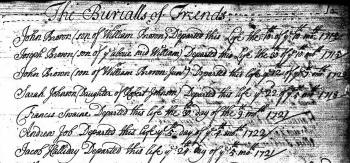 The Burialls of Friends
John Brown (son of William Brown) Departed this Life the 10 of ye 10 mo. 1712
Joseph Brown (son of ye above said William) Departed this Life the 10 of ye 10 mo. 1715
John Brown (son of William Brown Junr.) Departed this Life ye 12 of ye 5 mo.
Sarah Johnson (Daughter of Johnson) Departed this Life ye 22 of ye mo.
Francis Swaine Departed this life ye day of the 9 mo. 1721
Andrew Job Departed this life ye 5 day of ye mo. 1722
Jacob Halliday Departed this life ye 20 day of ye 5 mo. 1721